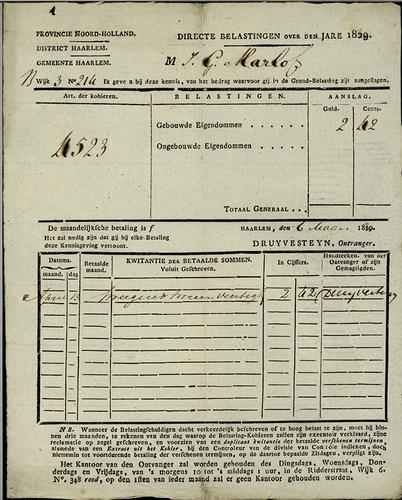 Provincie Noord-Holland.
District Haarlem.
Gemeente Haarlem.
Directe Belastingen over den jare 1829.
M J. G.
Wijk 3 No 214 Ik geve u bij deze kennis, van het bedrag waarvoor gij in de Grond-Belasting zijt aangeslagen.
Art. der kohieren.
BELASTINGEN.
AANSLAG.
Guld. Cents.
4523
Gebouwde Eigendommen . . . . . . 2 42
Ongebouwde Eigendommen . . . . .
Totaal Generaal . . .
De maandelijksche betaling is f
Het zal nodig zijn dat gij bij elke Betaling
deze Kennisgeving vertoont.
Haarlem, den 6 Maart 1829.
DRUYVESTEYN, Ontvanger.
Datums.
maand. dag
Betaalde maand.
KWITANTIE DER BETAALDE SOMMEN.
Voluit Geschreven.
In Cijffers.
Handteeken. van der
Ontvanger of zijn
Gemagtigden.
April 15 2 42
NB. Wanneer de Belastingschuldigen dacht verkeerdelijk beschreven of te hoog belast te zijn, moet hij bin-
nen drie maanden, te rekenen van den dag waarop de Belasting-Kohieren zullen zijn executoir verklaard, zijne
reclamatie op zegel geschreven, en voorzien van een duplicaat kwitantie der betaalde verschenen termijnen,
alsmede van een Extract uit het Kohier, bij den Controleur de divisie van Contrôle indienen, doch
allezints tot voortdurende betaling der verschenen termijnen, op de daartoe bepaalde Zitdagen, verpligt zijn.
Het Kantoor van den Ontvanger zal worden gehouden des Dingsdags, Woensdags, Don-
derdags en Vrijdags, van 's morgens 10 tot 's middags 1 uur, in de Ridderstraat, Wijk 6.
No. 348 rood, op den 1sten van ieder maand zal er geen Kantoor gehouden worden.